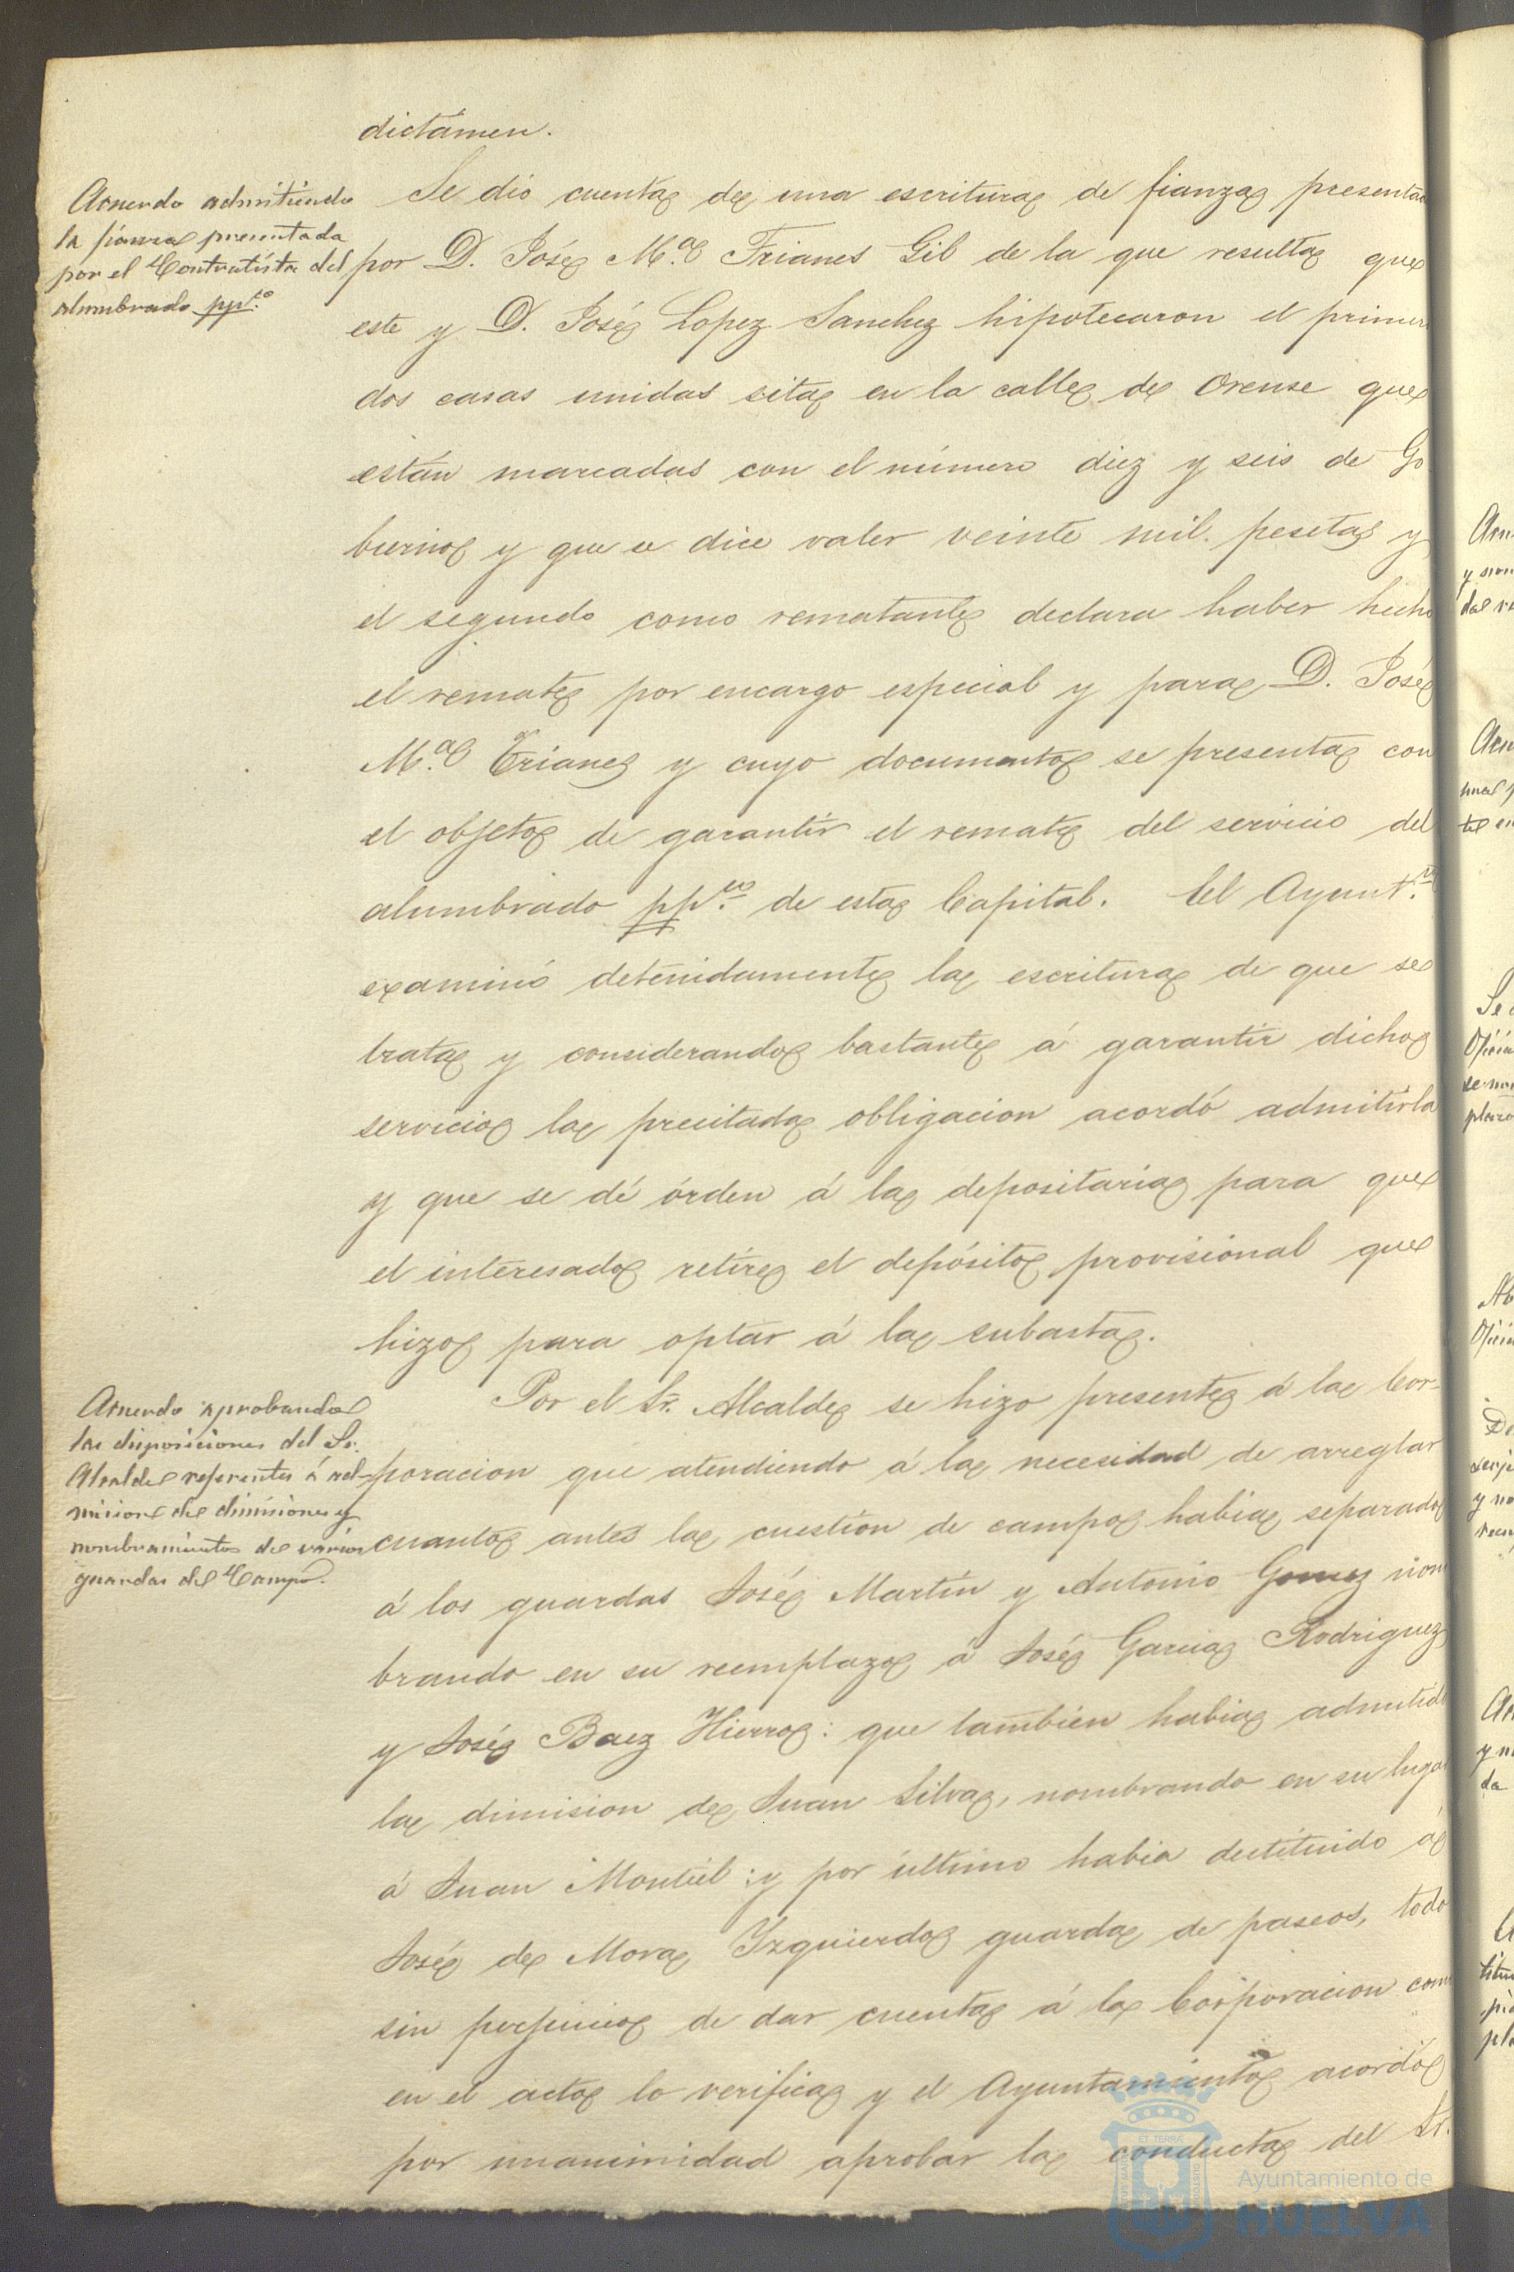 dictámen.
Acuerdo admitiendo
la fianza presentada
por el Contratista del
alumbrado ppco.
Se dió cuenta de una escritura de fianza presentada
por D. José Mª Trianes Gil de la que resulta que
este y D. José Lopez Sanchez hipotecaron el primero
dos casas unidas sitas en la calle de Orense que
están marcadas con el número diez y seis de Go
bierno y que se dice valer veinte mil pesetas y
el segundo como rematante declara haber hecho
el remate por encargo especial y para D. José
Mª Trianes y cuyo documento se presenta con
el objeto de garantir el remate del servicio del
alumbrado ppco. de esta Capital. El Ayuntº.
examinó detenidamente la escritura de que se
trata y considerando bastante á garantir dicho
servicio la precitada obligacion acordó admitirla
y que se dé órden á la depositaría para que
el interesado retire el depósito provisional que
hizo para optar á la subasta.
Acuerdo aprobando
las disposiciones del Sr.
Alcalde referentes á ad-
mision de dimisiones y
nombramientos de varios
guardas del Campo.
Por el Sr. Alcalde se hizo presente á la Cor-
poracion que atendiendo á la necesidad de arreglar
cuanto antes la cuestion de campo habia separado
á los guardas José Martin y Antonio Gomez nom
brando en su reemplazo á José Garcia Rodriguez
y José Baez Hierro: que tambien habia admitido
la dimision de Juan Silva, nombrando en su lugar
á Juan Montiel: y por último habia destituido á
José de Mora Izquierdo guarda de paseos, todo
sin perjuicio de dar cuenta á la Corporacion como
en el acto lo verifica y el Ayuntamiento acordó
por unanimidad aprobar la conducta del Sr.
Ayuntamiento de
HUELVA